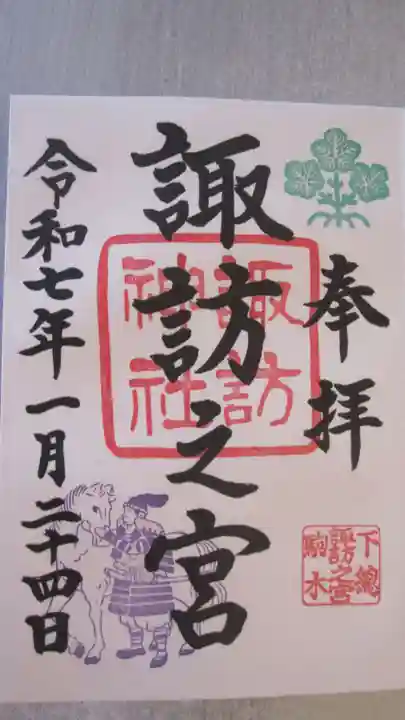 奉拝
諏訪之宮
諏訪
神社
下總
諏訪之宮
駒木
令和七年一月二十四日